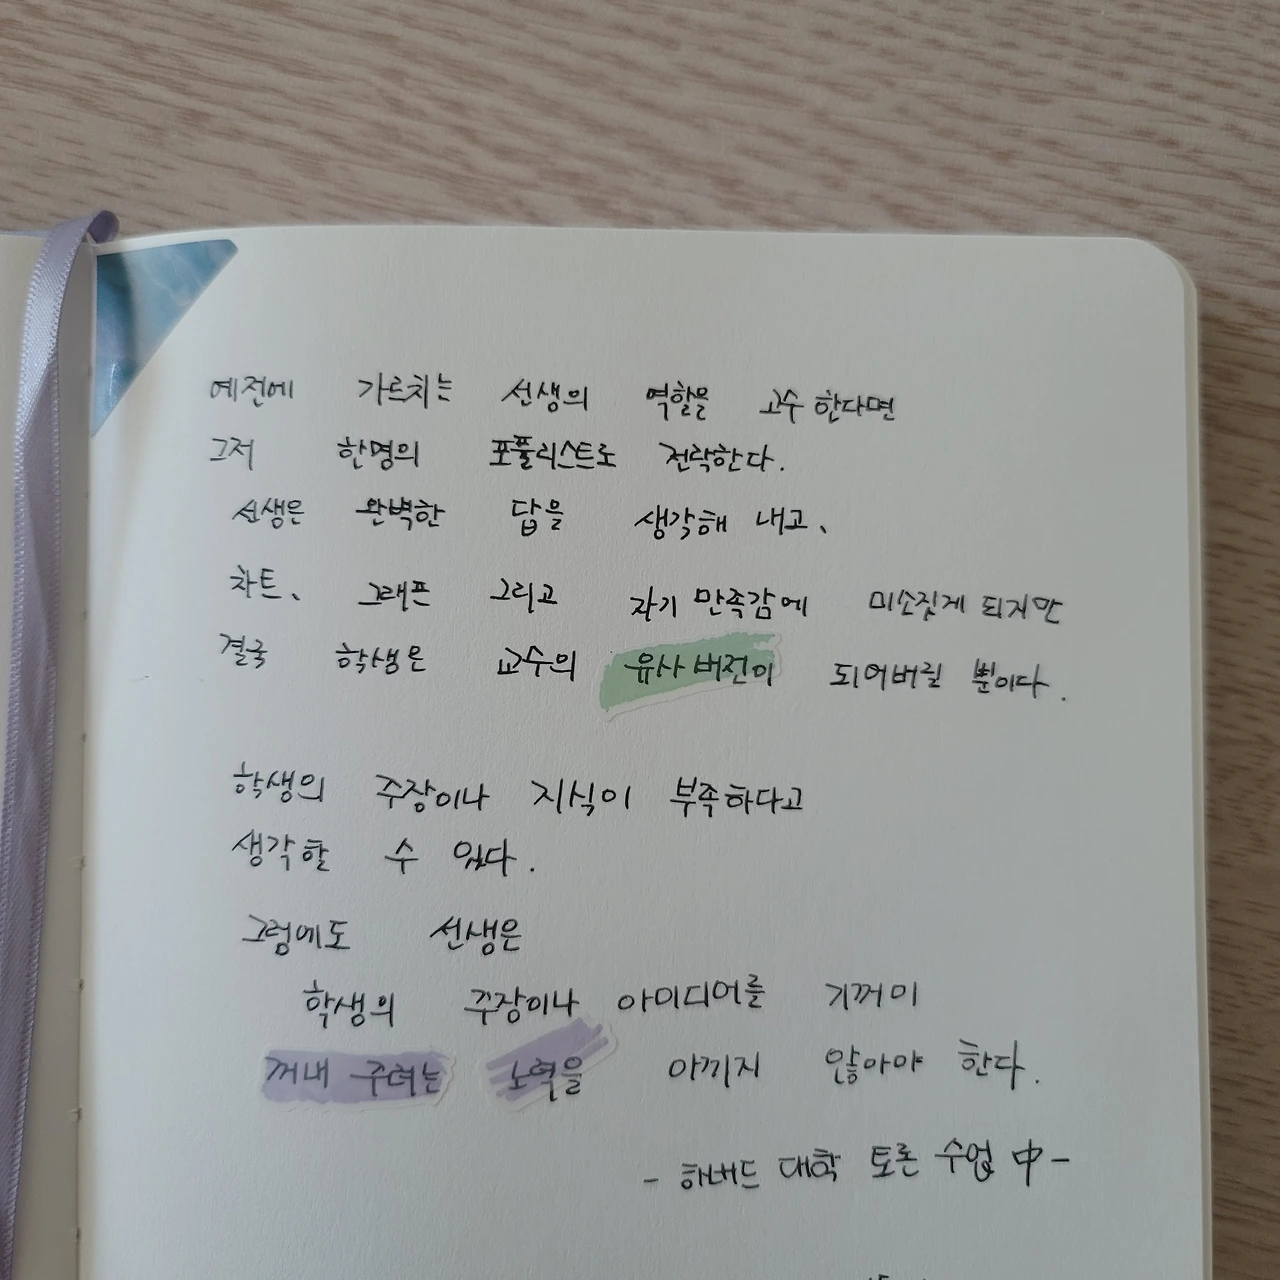 예전에 가르치는 선생의 역할을 고수한다면
그저 한명의 포퓰리스트로 전락한다.
선생은 완벽한 답을 생각해 내고、
차트、 그래프 그리고 자기 만족감에 미소짓게 되지만
결국 학생은 교수의 유사버전이 되어버릴 뿐이다.
학생의 주장이나 지식이 부족하다고
생각할 수 있다.
그럼에도 선생은
학생의 주장이나 아이디어를 기꺼이
꺼내 주려는 노력을 아끼지 않아야 한다.
- 하버드 대학 토론 수업 中-